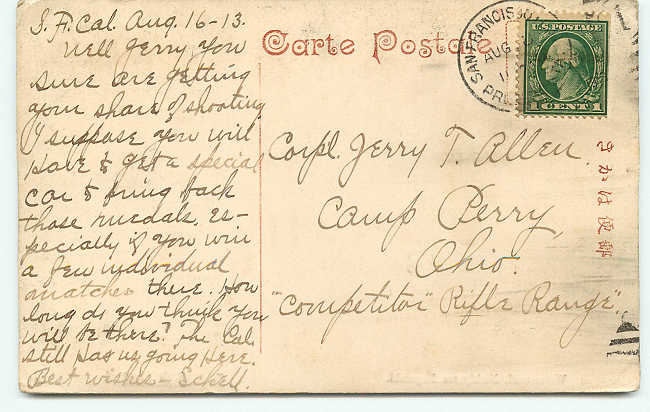 S.F. Cal. Aug. 16-13.
Well Jerry You
sure are getting
your share of shooting
I suppose you will
have to get a special
car to bring back
those medals, es-
pecially if you win
a few individual
matches there. How
long do you think you
will be there? The Cal.
still has us going here.
Best wishes – Schell.
Carte Postale
SAN FRANCISCO
AUG
U.S. POSTAGE
1 CENT 1
Corpl. Jerry T. Allen.
Camp Perry,
Ohio.
"Competitor" Rifle Range".
きかは便郵